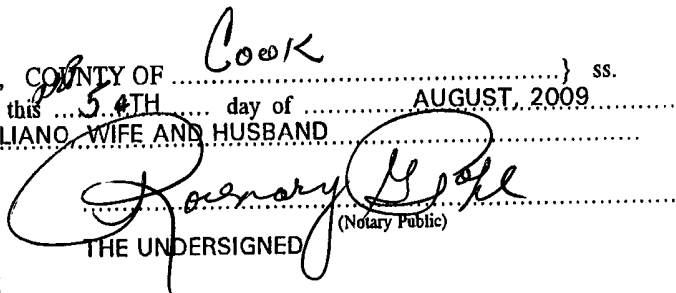 COUNTY OF Cook } ss.
this 5 4TH day of AUGUST, 2009
LIANO, WIFE AND HUSBAND
Rosemary
(Notary Public)
THE UNDERSIGNED